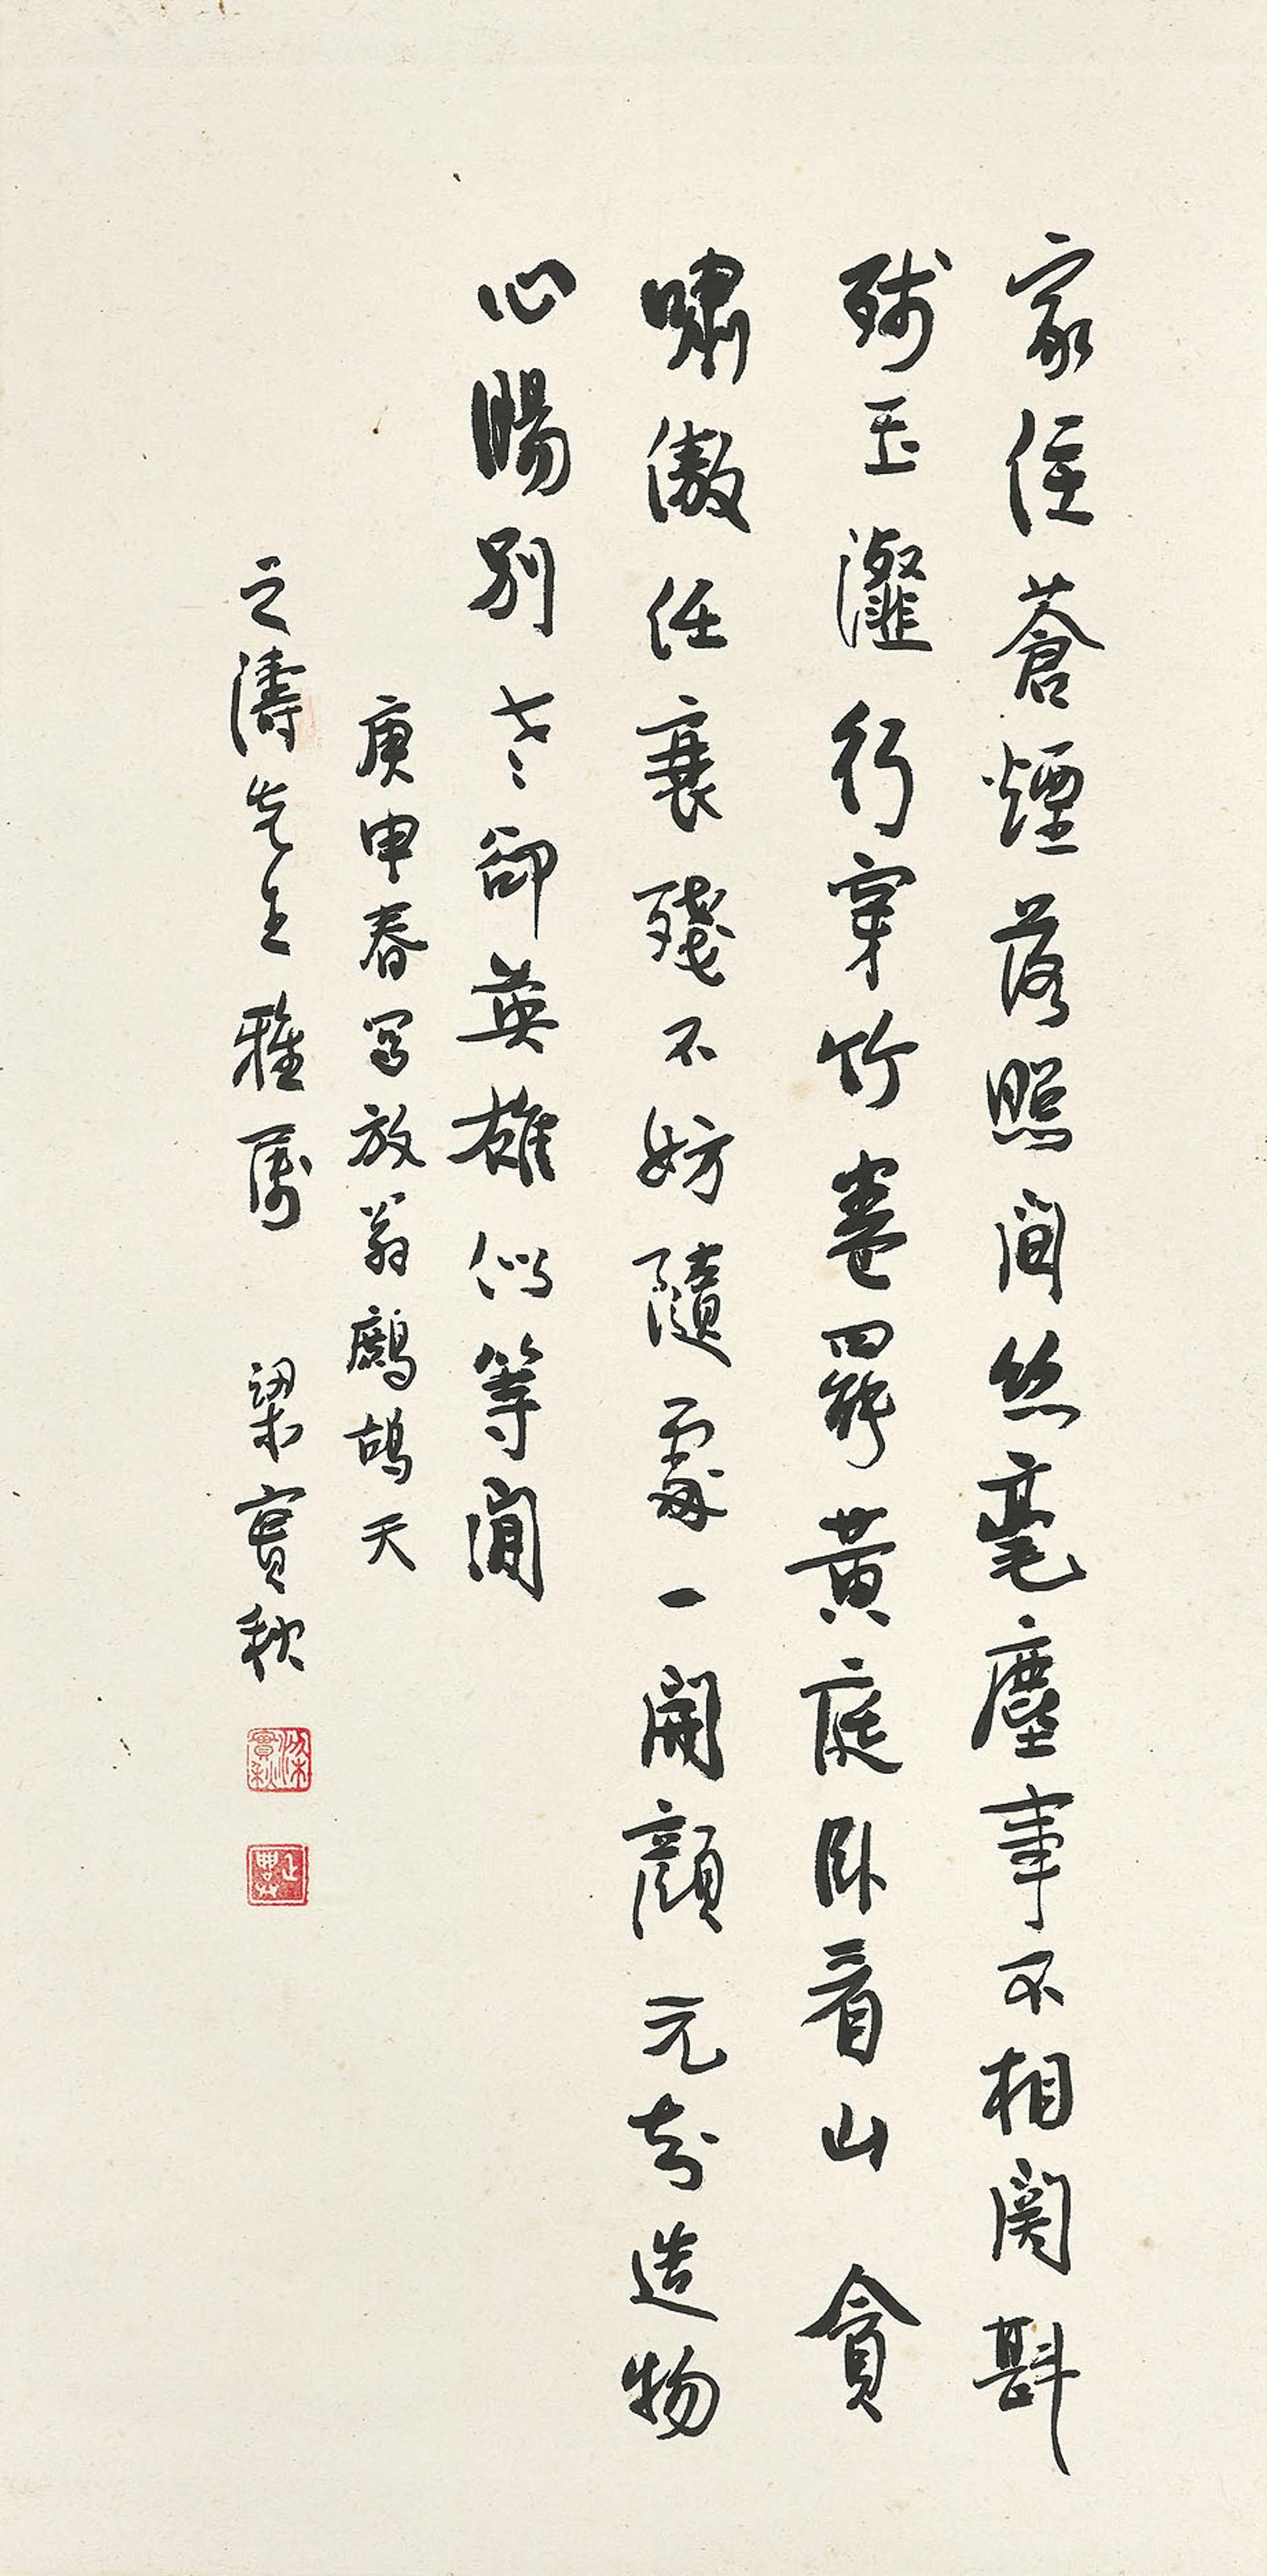 家住蒼煙落照間絲毫塵事不相關斟
殘玉瀣行穿竹卷罷黃庭臥看山貪
嘯傲任衰殘不妨隨處一開顏元知造物
心腸別老卻英雄似等閒
庚申春寫放翁鷓鴣天
之濤先生雅屬 梁實秋
梁實秋